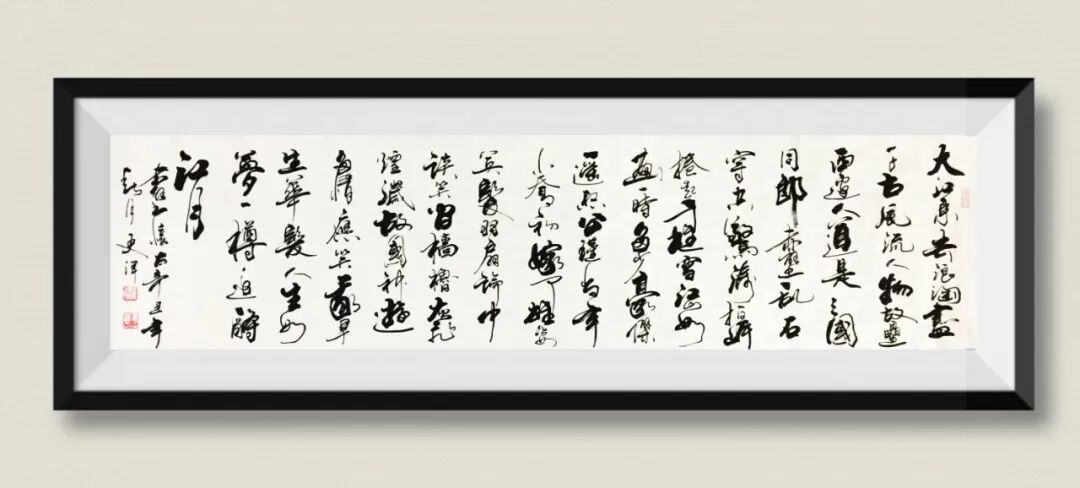 大江東去浪淘盡
千古風流人物故壘
西邊人道是三國
周郎赤壁亂石
穿空驚濤拍岸
捲起千堆雪江山如
畫一時多少豪傑
遙想公瑾當年
小喬初嫁了雄姿
英發羽扇綸巾
談笑間檣櫓灰飛
煙滅故國神遊
多情應笑我早
生華髮人生如
夢一樽還酹
江月
赤壁懷古辛丑年
月